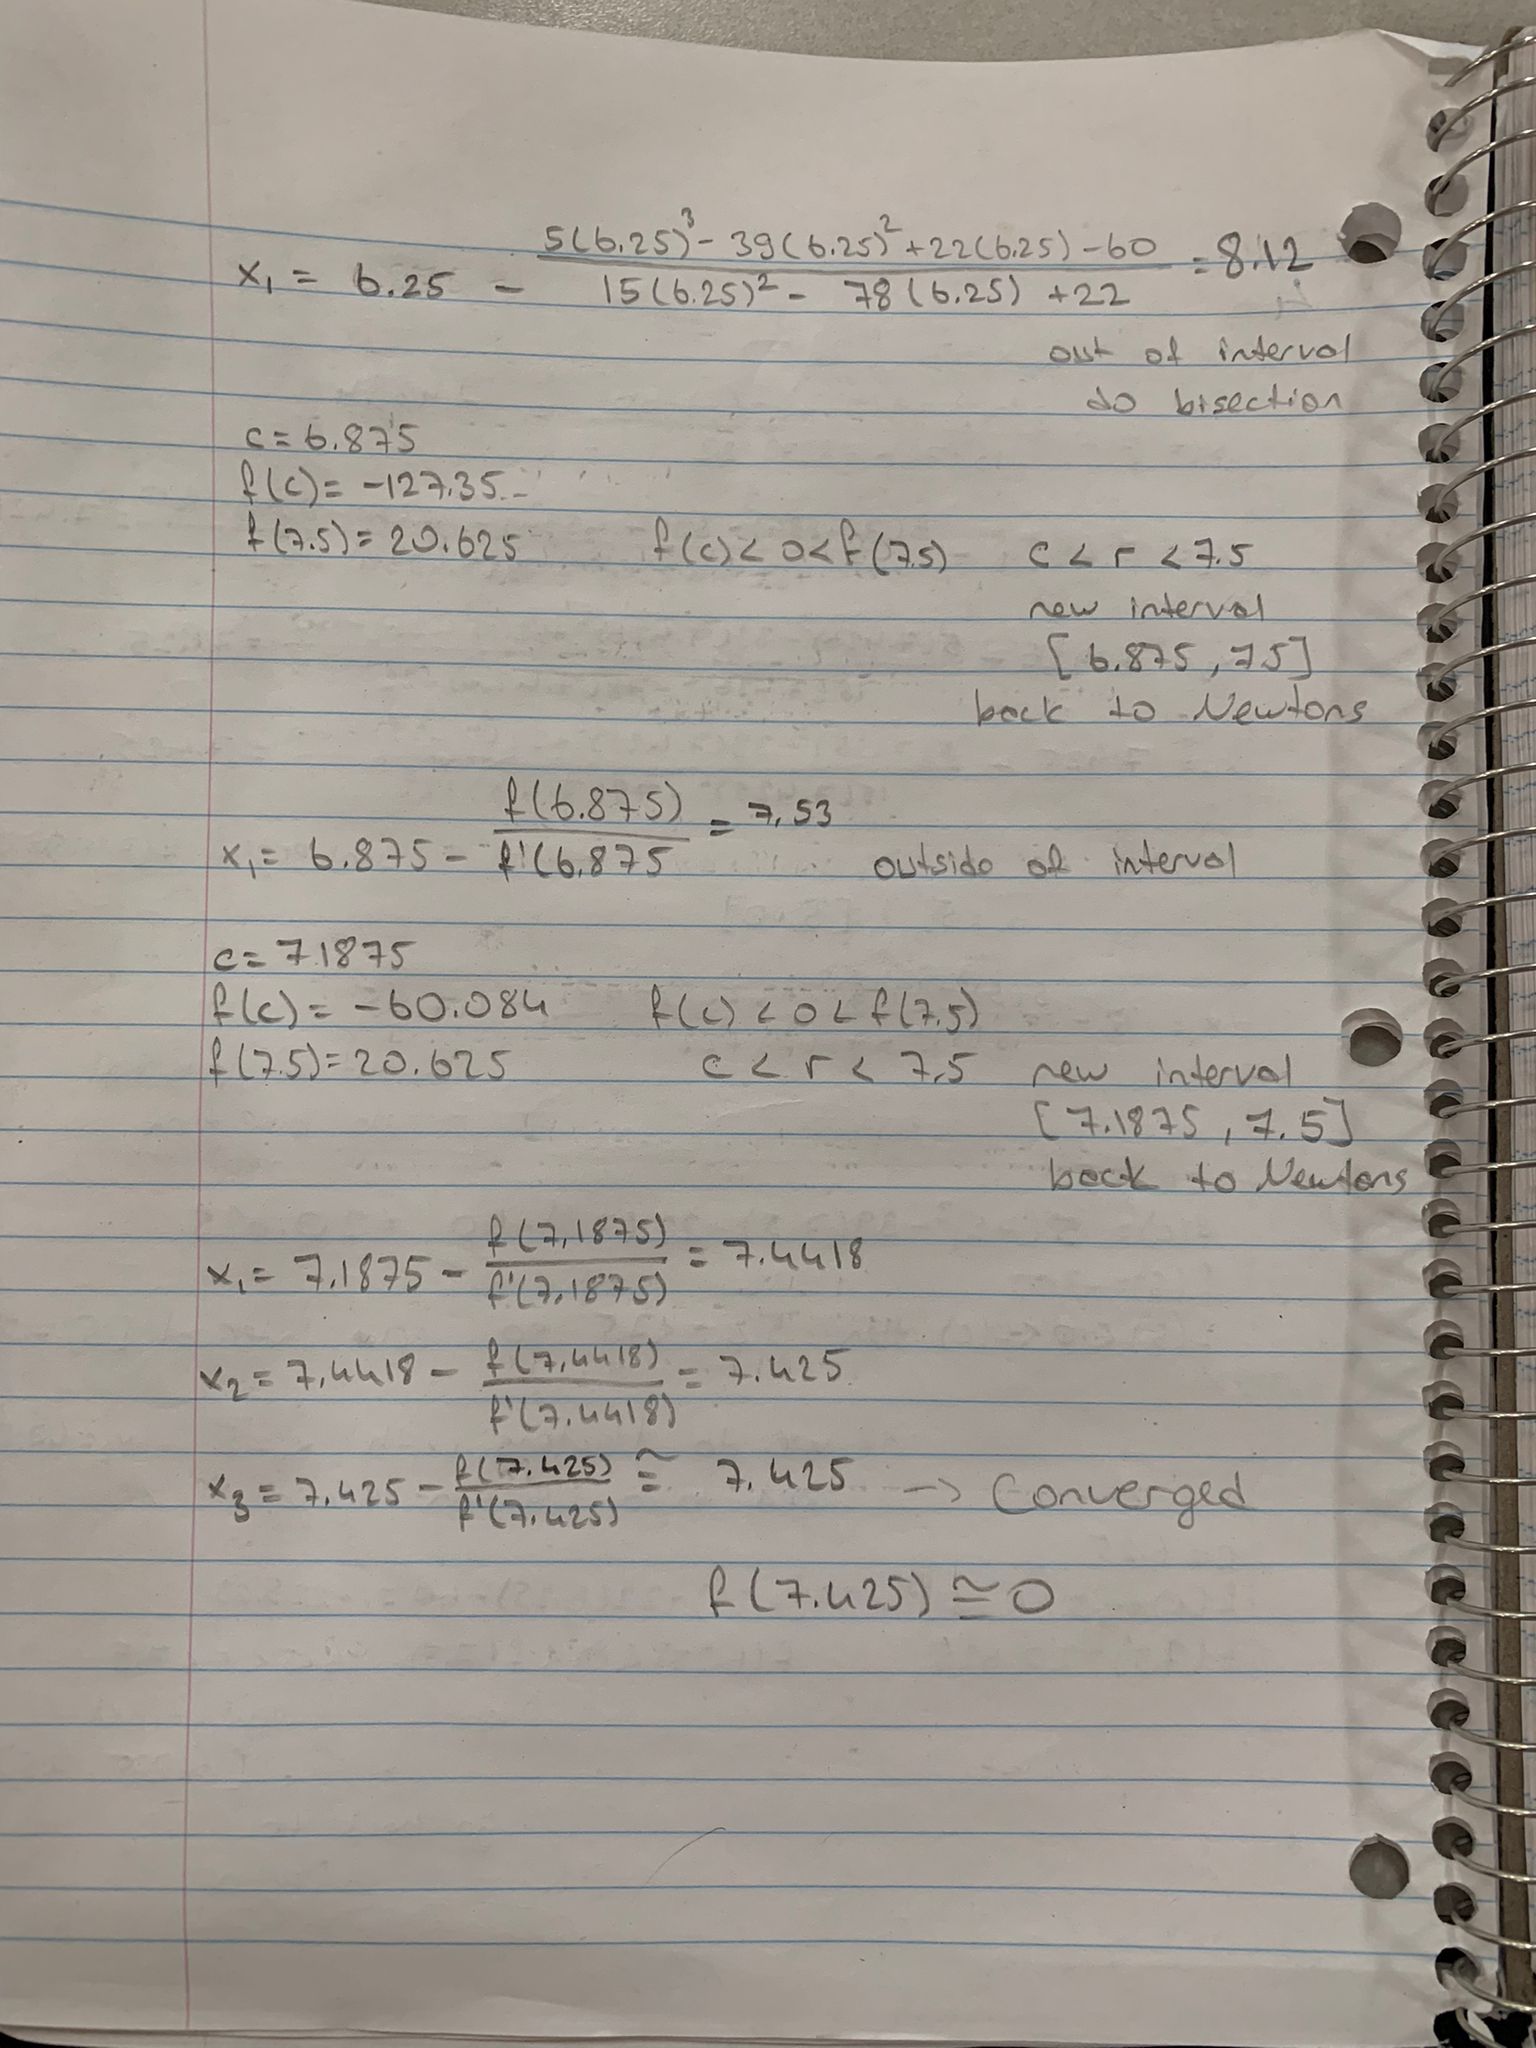 x₁ = 6.25 - (5(6.25)³ - 39(6.25)² + 22(6.25) - 60) / (15(6.25)² - 78(6.25) + 22) = 8.12
out of interval
do bisection
c = 6.875
f(c) = -127.35..
f(7.5) = 20.625 f(c) < 0 < f(7.5) c < r < 7.5
new interval
[6.875, 7.5]
back to Newtons
x₁ = 6.875 - f(6.875) / f'(6.875 = 7.53 outside of interval
c = 7.1875
f(c) = -60.084 f(c) < 0 < f(7.5)
f(7.5) = 20.625 c < r < 7.5 new interval
[7.1875, 7.5]
back to Newtons
x₁ = 7.1875 - f(7.1875) / f'(7.1875) = 7.4418
x₂ = 7.4418 - f(7.4418) / f'(7.4418) = 7.425
x₃ = 7.425 - f(7.425) / f'(7.425) ≅ 7.425 → Converged
f(7.425) ≅ 0